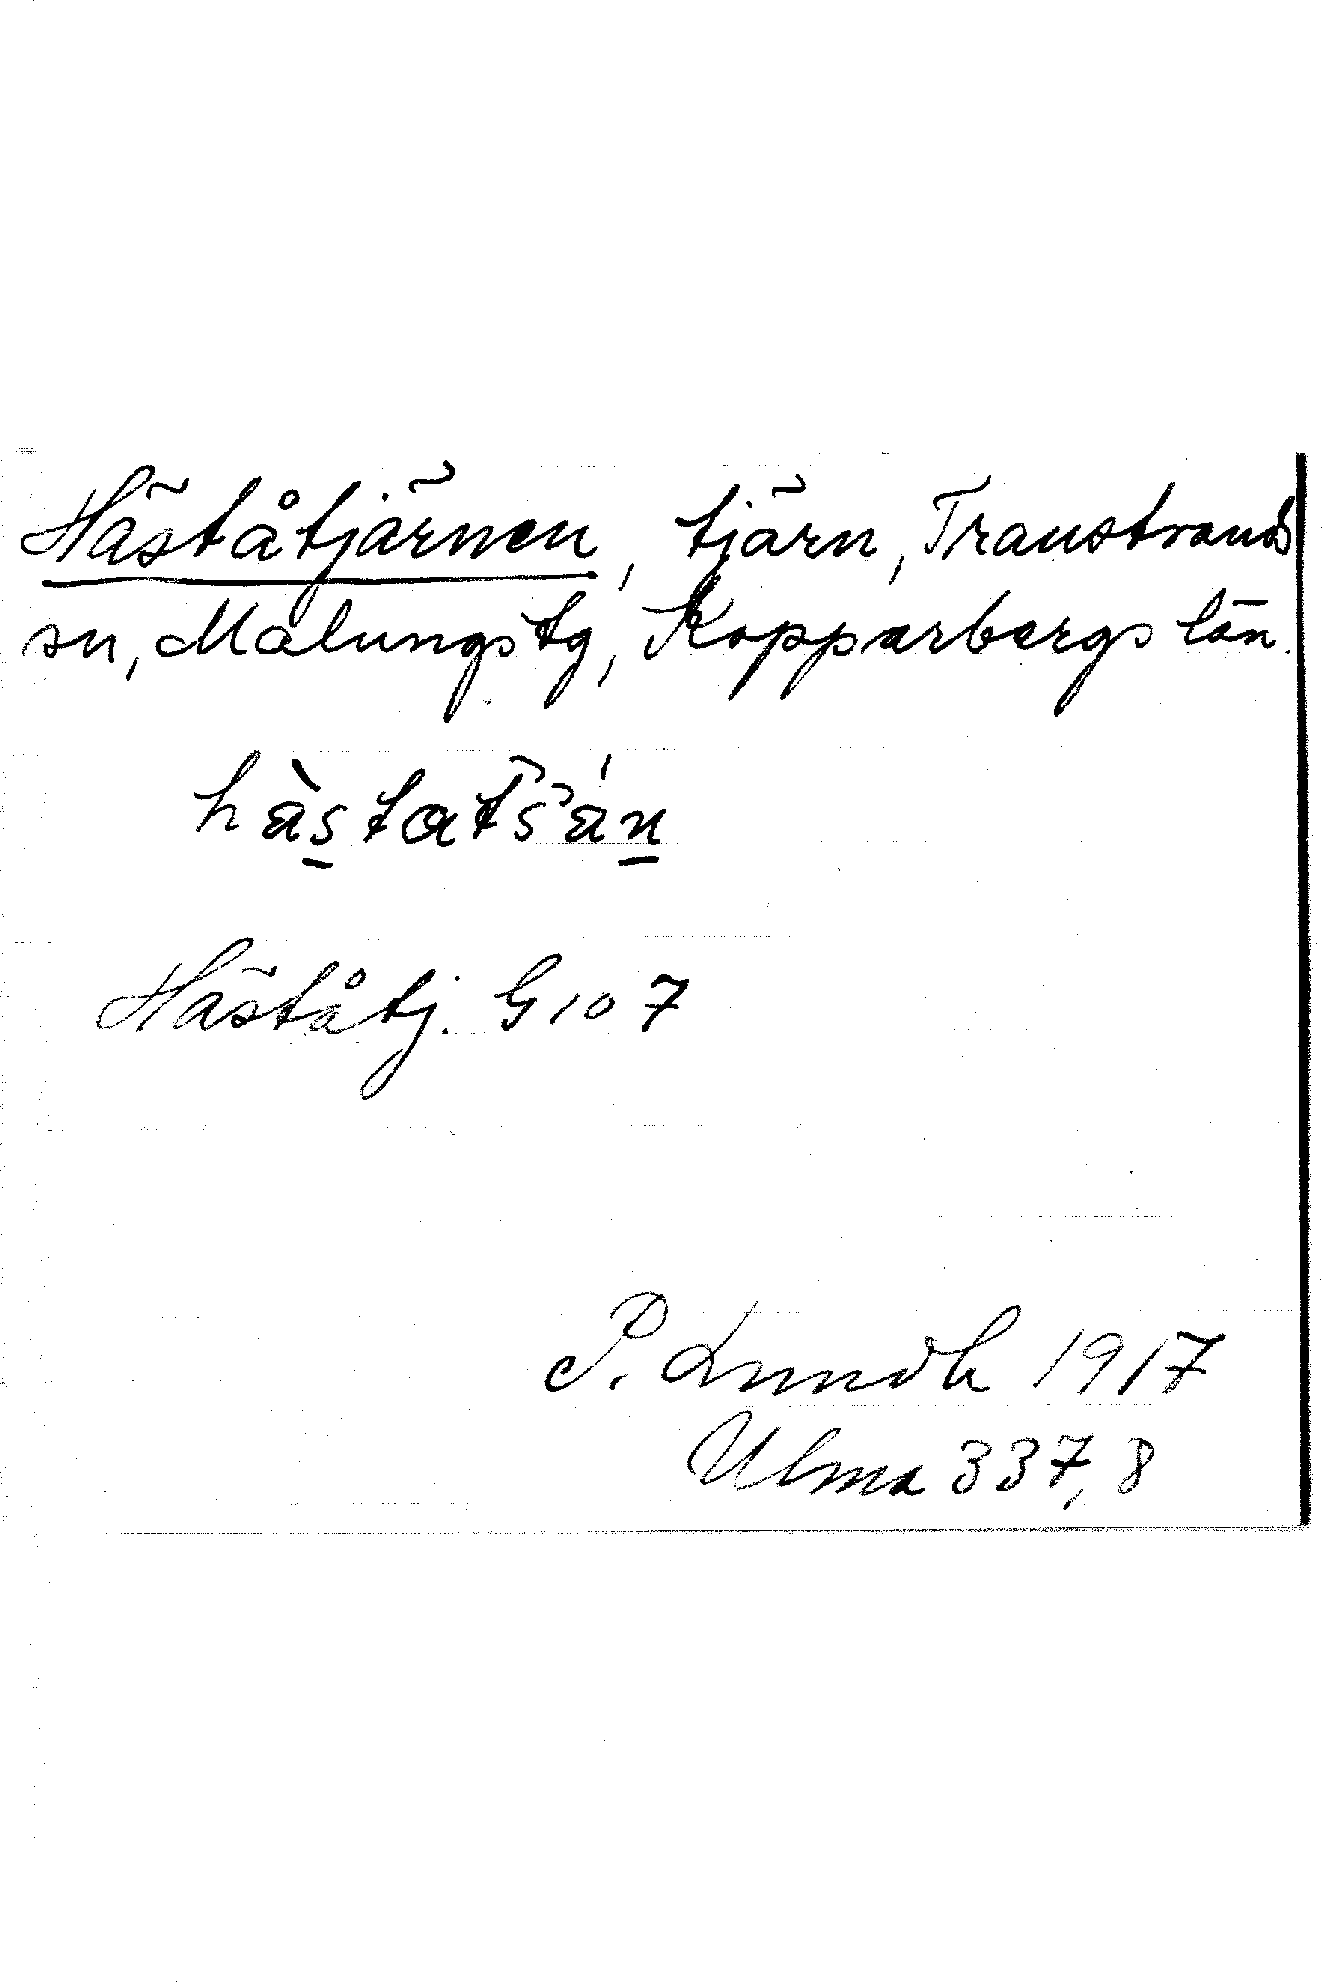 Häståtjärnen, tjärn, Transtrands
sn, Malungs tg, Kopparbergs län.
Häståtj. G 10 7
P. Lundh 1917
Ulma 337,8